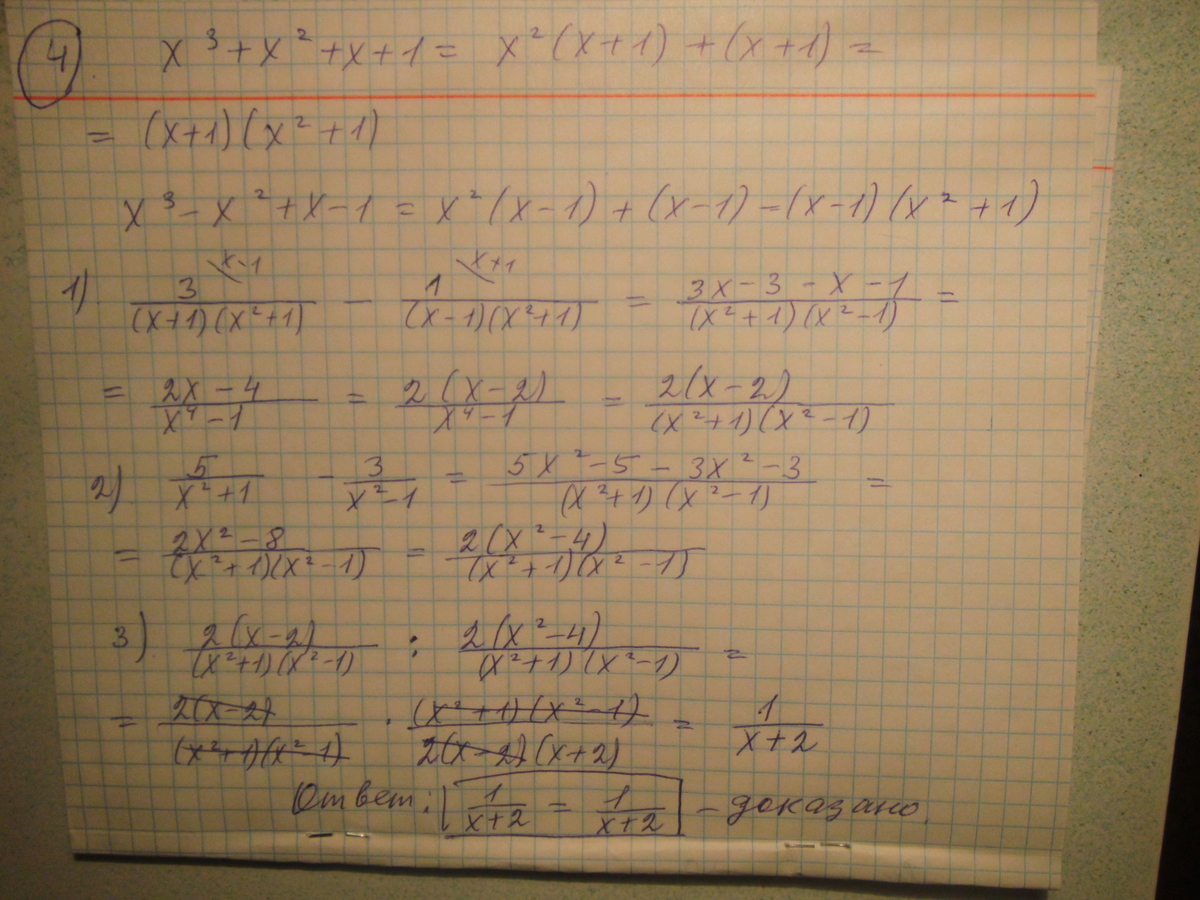 4. x³ + x² + x + 1 = x² (x+1) + (x+1) =
= (x+1)(x² + 1)
x³ - x² + x - 1 = x² (x-1) + (x-1) - (x-1)(x² + 1)
1) 3/((x+1)(x²+1)) x-1 - 1/((x-1)(x²+1)) x+1 = (3x - 3 - x - 1)/((x²+1)(x²-1)) =
= (2x - 4)/(x⁴ - 1) = 2(x-2)/(x⁴ - 1) = 2(x-2)/((x²+1)(x²-1))
2) 5/(x²+1) - 3/(x²-1) = (5x² - 5 - 3x² - 3)/((x²+1)(x²-1)) =
= (2x² - 8)/((x²+1)(x²-1)) = 2(x²-4)/((x²+1)(x²-1))
3) 2(x-2)/((x²+1)(x²-1)) : 2(x²-4)/((x²+1)(x²-1)) =
= 2(x-2)/((x²+1)(x²-1)) · (x²+1)(x²-1)/(2(x-2)(x+2)) = 1/(x+2)
Ответ: 1/(x+2) = 1/(x+2) - доказано.